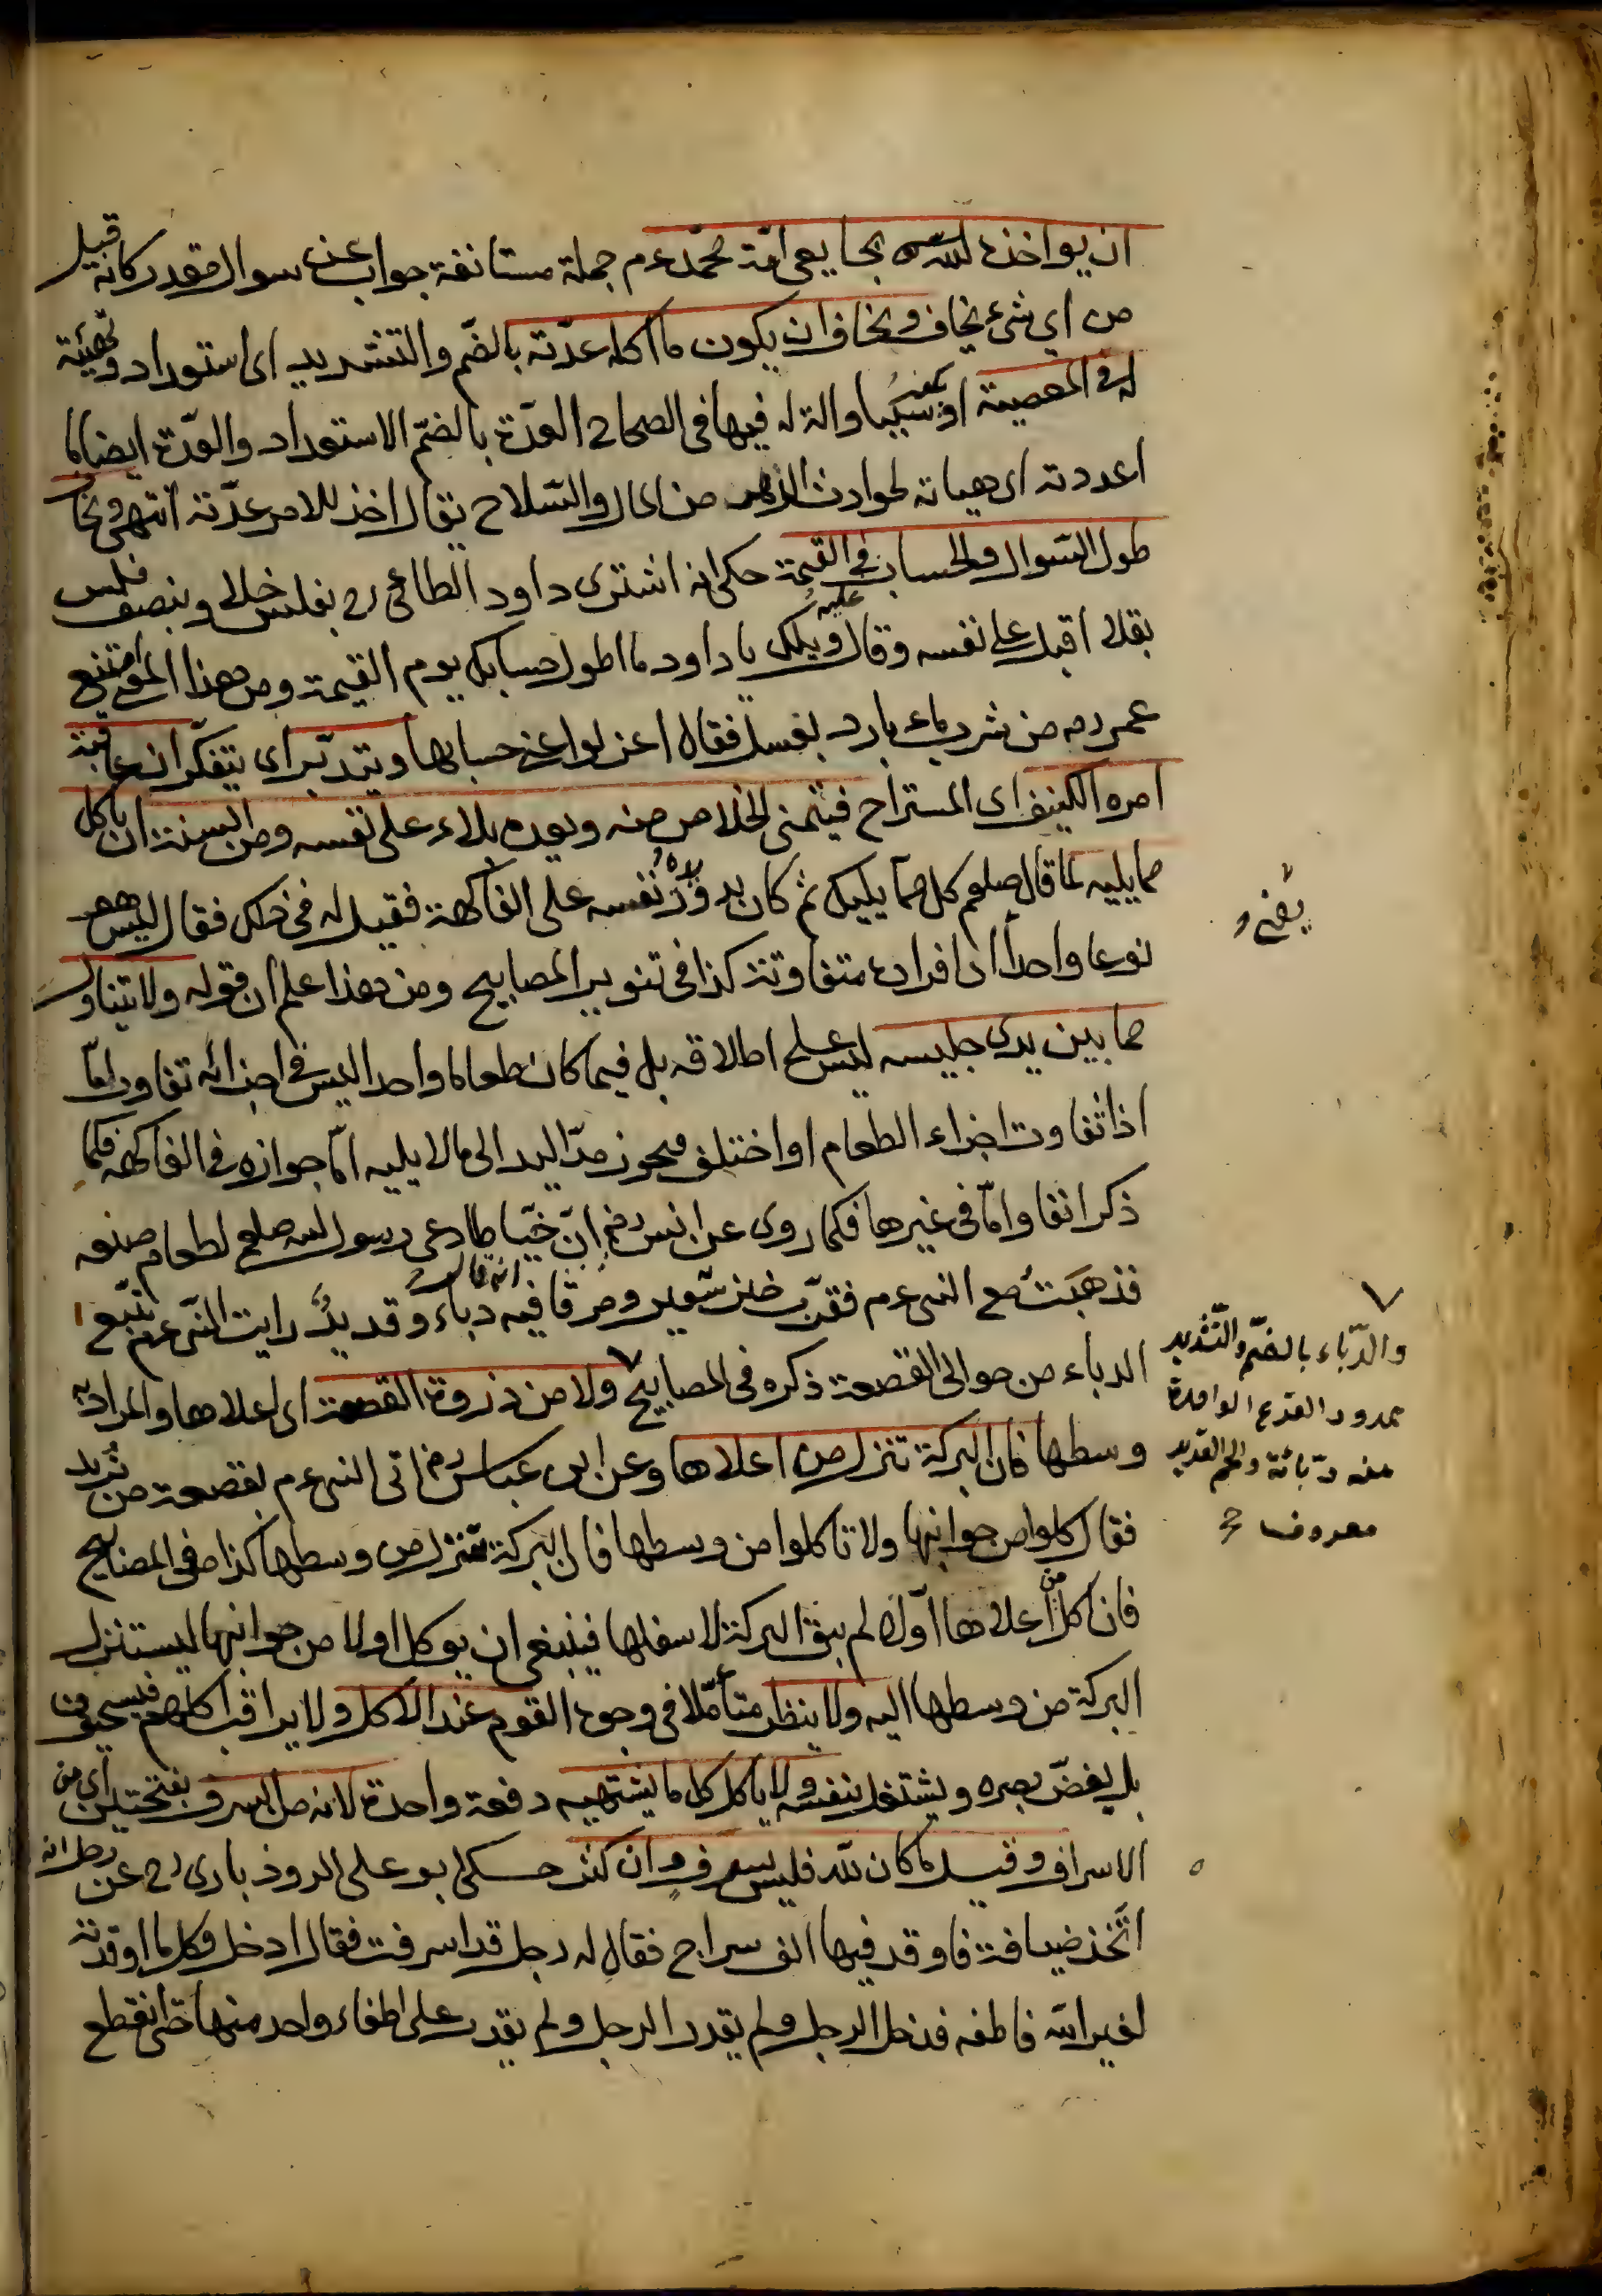 ان يواخذه الله بما يعى امة محمد عم جملة مستانفة جواب عن سوال مقدر كانه قيل
من اي شئ يخاف ويخاف ان يكون ما اكله عدّته بالضّم والتشديد اى استعداد وتهيئة
له في المعصية او سببا والة له فيها في الصحاح العدّة بالضّم الاستعداد والعدّة ايضا ما
اعددته اى هيأته لحوادث الدهر من المال والسّلاح يقال اخذ للامر عدّته انتهى ويخاف
طول السّوال والحساب في القيمة حكى انه اشترى داود الطائى رح بفلس خلا وبنصف فلس
بقلا اقبل على نفسه وقال ويلك يا داود ما اطول حسابك يوم القيمة ومن هذا امتنع
عمر رض من شرب ماء بارد بعسل فقال اعزلوا عنى حسابها ويتدبّر اى يتفكّر ان عاقبة
امره الكنيف اى المستراح فيتمنى الخلاص منه ويعده بلاء على نفسه ومن السنة ان ياكل
مما يليه لما قال صلعم كل مما يليك ثم كان يدور يده نفسه على الفاكهة فقيل له في ذلك فقال ليس هو
نوعا واحدا اى افراده متفاوتة كذا في تنوير المصابيح ومن هذا علم ان قوله ولا يتناول
مما بين يدى جليسه ليس على اطلاقه بل فيما كان طعاما واحدا ليس في اجزائه تفاوت امّا
اذا تفاوت اجزاء الطعام او اختلف فيجوز مدّ اليد الى مالا يليه امّا جوازه في الفاكهة فكما
ذكر انفا وامّا في غيرها فكما روى عن انس رض انّ خيّاطا دعى رسول الله صلعم لطعام صنعه
فذهبت مع النبى عم فقرّب خبز شعير ومرقا فيه دباء وقديدٌ انه قال رايت النّبى عم يتّبع
الدباء من حوالى القصعة ذكره في المصابيح ولا من ذروة القصعة اى اعلاها والمراد به
وسطها فان البركة تنزل من اعلاها وعن ابن عباس رض اتى النبى عم بقصعة من ثريد
فقال كلوا من جوانبها ولا تاكلوا من وسطها فان البركة تنزل من وسطها كذا في المصابيح
فان اكل من اعلاها اوّلا لم يبق البركة لاسفلها فينبغى ان يوكل اولا من جوانبها ليستنزل
البركة من وسطها اليه ولا ينظر متأمّلا في وجوه القوم عند الاكل ولا يراقب اكلهم فيستحيون
بل يغضّ بصره ويشتغل بنفسه ولا ياكل كل ما يشتهيه دفعة واحدة لانه من السرف بفتحتين اى من
الاسراف وقيل ما كان لله فليس بسرف وان كثر حكى ابو على الروذبارى رح عن رجل انه
اتّخذ ضيافة فاوقد فيها الف سراج فقال له رجل قد اسرفت فقال ادخل فكل ما اوقدته
لغير الله فاطفه فدخل الرجل ولم يقدر الرجل ولم يقدر على اطفاء واحد منها حتى انقطع
والدّباء بالضّم والتّشديد
ممدود القرع الواحدة
منه دبّائة واللحم القديد
معروف